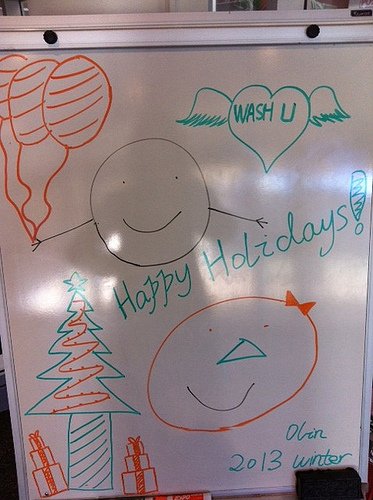 WASH U
Happy Holidays!
Olin
2013 winter
EXPO